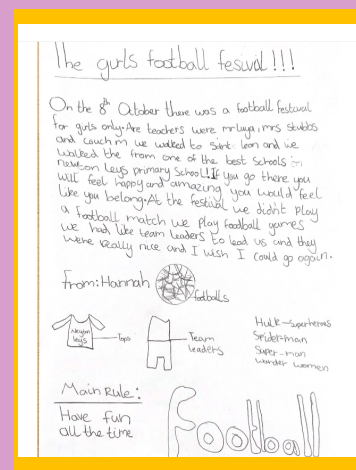 The gurls football fesival!!!
On the 8th October there was a football festaval
for gurls only. Are teachers were mr luya, mrs stubbs
and couch m we walked to saint leon and we
walked the from one of the best schools :-
newton leys primary School! If you go there you
will feel happy and amazing you would feel
like you belong. At the festival we didn't play
a football match we play football games
we had like team leaders to lead us and they
were really nice and I wish I could go again.
From: Hannah
footballs
Newton
leys
Tops
Team
leaders
Hulk - superheroes
Spider-man
Super-man
Wonder women
Main Rule:
Have fun
all the time
Football